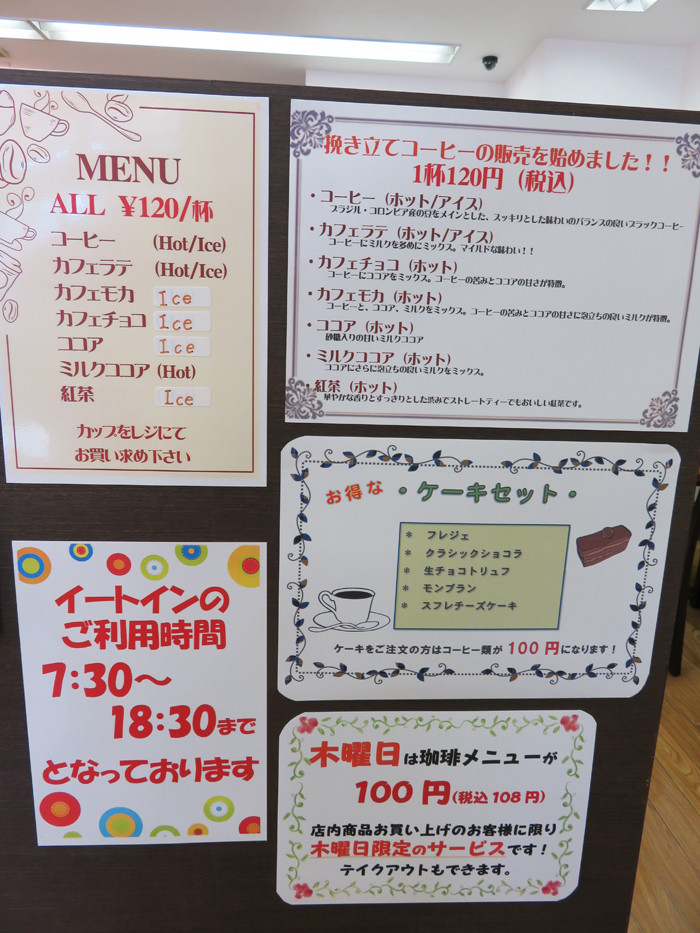 MENU
ALL ¥120/杯
コーヒー (Hot/Ice)
カフェラテ (Hot/Ice)
カフェモカ Ice
カフェチョコ Ice
ココア Ice
ミルクココア (Hot)
紅茶 Ice
カップをレジにて
お買い求め下さい
挽き立てコーヒーの販売を始めました！！
1杯120円（税込）
・コーヒー（ホット/アイス）
ブラジル・コロンビア産の豆をメインとした、スッキリとした味わいのバランスの良いブラックコーヒー
・カフェラテ（ホット/アイス）
コーヒーにミルクを多めにミックス。マイルドな味わい！！
・カフェチョコ（ホット）
コーヒーにココアをミックス。コーヒーの苦みとココアの甘さが特徴。
・カフェモカ（ホット）
コーヒーと、ココア、ミルクをミックス。コーヒーの苦みとココアの甘さに泡立ちの良いミルクが特徴。
・ココア（ホット）
砂糖入りの甘いミルクココア
・ミルクココア（ホット）
ココアにさらに泡立ちの良いミルクをミックス。
・紅茶（ホット）
華やかな香りとすっきりとした渋みでストレートティーでもおいしい紅茶です。
お得な ・ケーキセット・
＊ フレジェ
＊ クラシックショコラ
＊ 生チョコトリュフ
＊ モンブラン
＊ スフレチーズケーキ
ケーキをご注文の方はコーヒー類が 100 円になります！
イートインの
ご利用時間
7:30～
18:30まで
となっております
木曜日は珈琲メニューが
100 円(税込 108 円)
店内商品お買い上げのお客様に限り
木曜日限定のサービスです！
テイクアウトもできます。